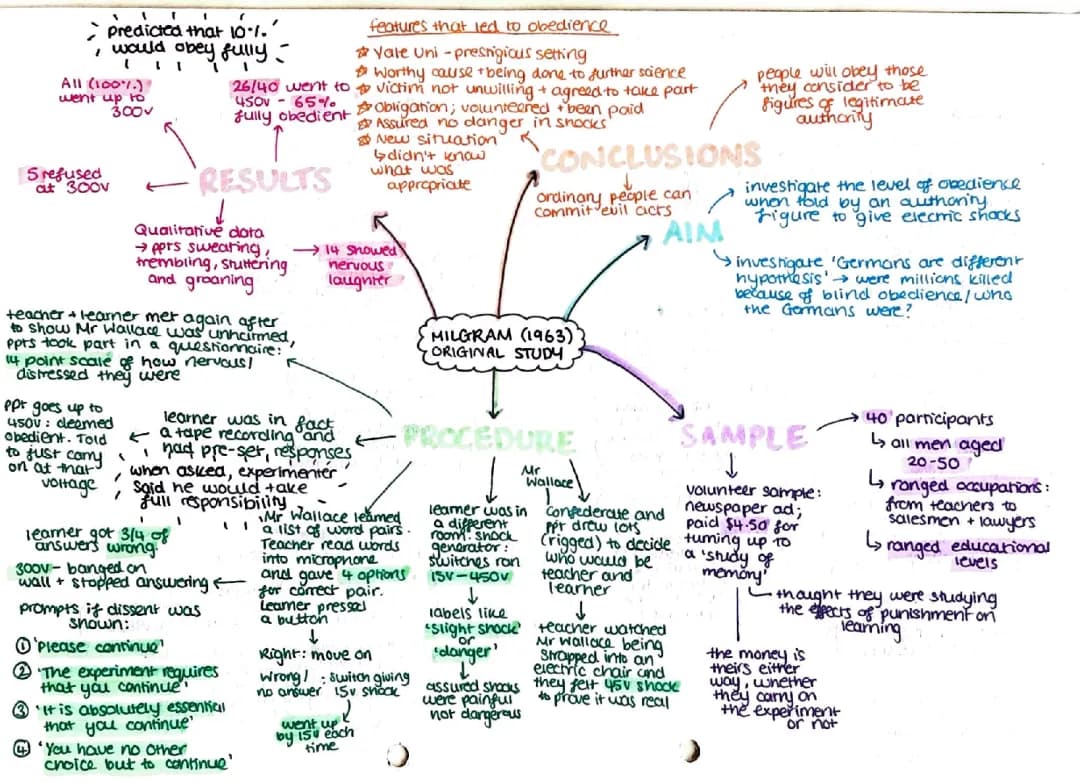 MILGRAM (1963)
ORIGINAL STUDY
RESULTS
predicted that 10%
would obey fully
All (100%)
went up to
300v
26/40 went to
450v - 65%
fully obedient
5 refused
at 300v
Qualitative data
→ ppts sweating,
trembling, stuttering
and groaning
→ 14 showed
nervous
laughter
features that led to obedience
☆ Yale Uni - prestigious setting
☆ Worthy cause + being done to further science
☆ Victim not unwilling + agreed to take part
☆ Obligation; volunteered + been paid
☆ Assured no danger in shocks
☆ New situation
↳ didn't know
what was
appropriate
CONCLUSIONS
people will obey those
they consider to be
figures of legitimate
authority
ordinary people can
commit evil acts
AIM
investigate the level of obedience
when told by an authority
figure to give electric shocks
investigate 'Germans are different
hypothesis' → were millions killed
because of blind obedience/who
the Germans were?
SAMPLE
40 participants
↳ all men aged
20-50
↳ ranged occupations:
from teachers to
salesmen + lawyers
↳ ranged educational
levels
volunteer sample:
newspaper ad;
paid $4.50 for
turning up to
a 'study of
memory'
thought they were studying
the effects of punishment on
learning
the money is
theirs either
way, whether
they carry on
the experiment
or not
PROCEDURE
teacher + learner met again after
to show Mr Wallace was unharmed,
ppts took part in a questionnaire:
14 point scale of how nervous/
distressed they were
learner was in fact
a tape recording and
had pre-set, responses
when asked, experimenter
said he would take
full responsibility
ppt goes up to
450v: deemed
obedient. Told
to just carry
on at that
voltage
Mr Wallace learned
a list of word pairs.
Teacher read words
into microphone
and gave 4 options
for correct pair.
Learner pressed
a button
↓
Right: move on
Wrong/
no answer : switch giving
15v shock
went up
by 15v each
time
learner got 3/4 of
answers wrong.
300v- banged on
wall + stopped answering
prompts if dissent was
shown:
① 'Please continue'
② 'The experiment requires
that you continue'
③ 'It is absolutely essential
that you continue'
④ 'You have no other
choice but to continue'
learner was in
a different
room. shock
generator:
switches ran
15v-450v
↓
labels like
'slight shock'
or
'danger'
↓
assured shocks
were painful
not dangerous
Mr
Wallace
Confederate and
ppt drew lots
(rigged) to decide
who would be
teacher and
learner
↓
teacher watched
Mr Wallace being
strapped into an
electric chair and
they felt 45v shock
to prove it was real